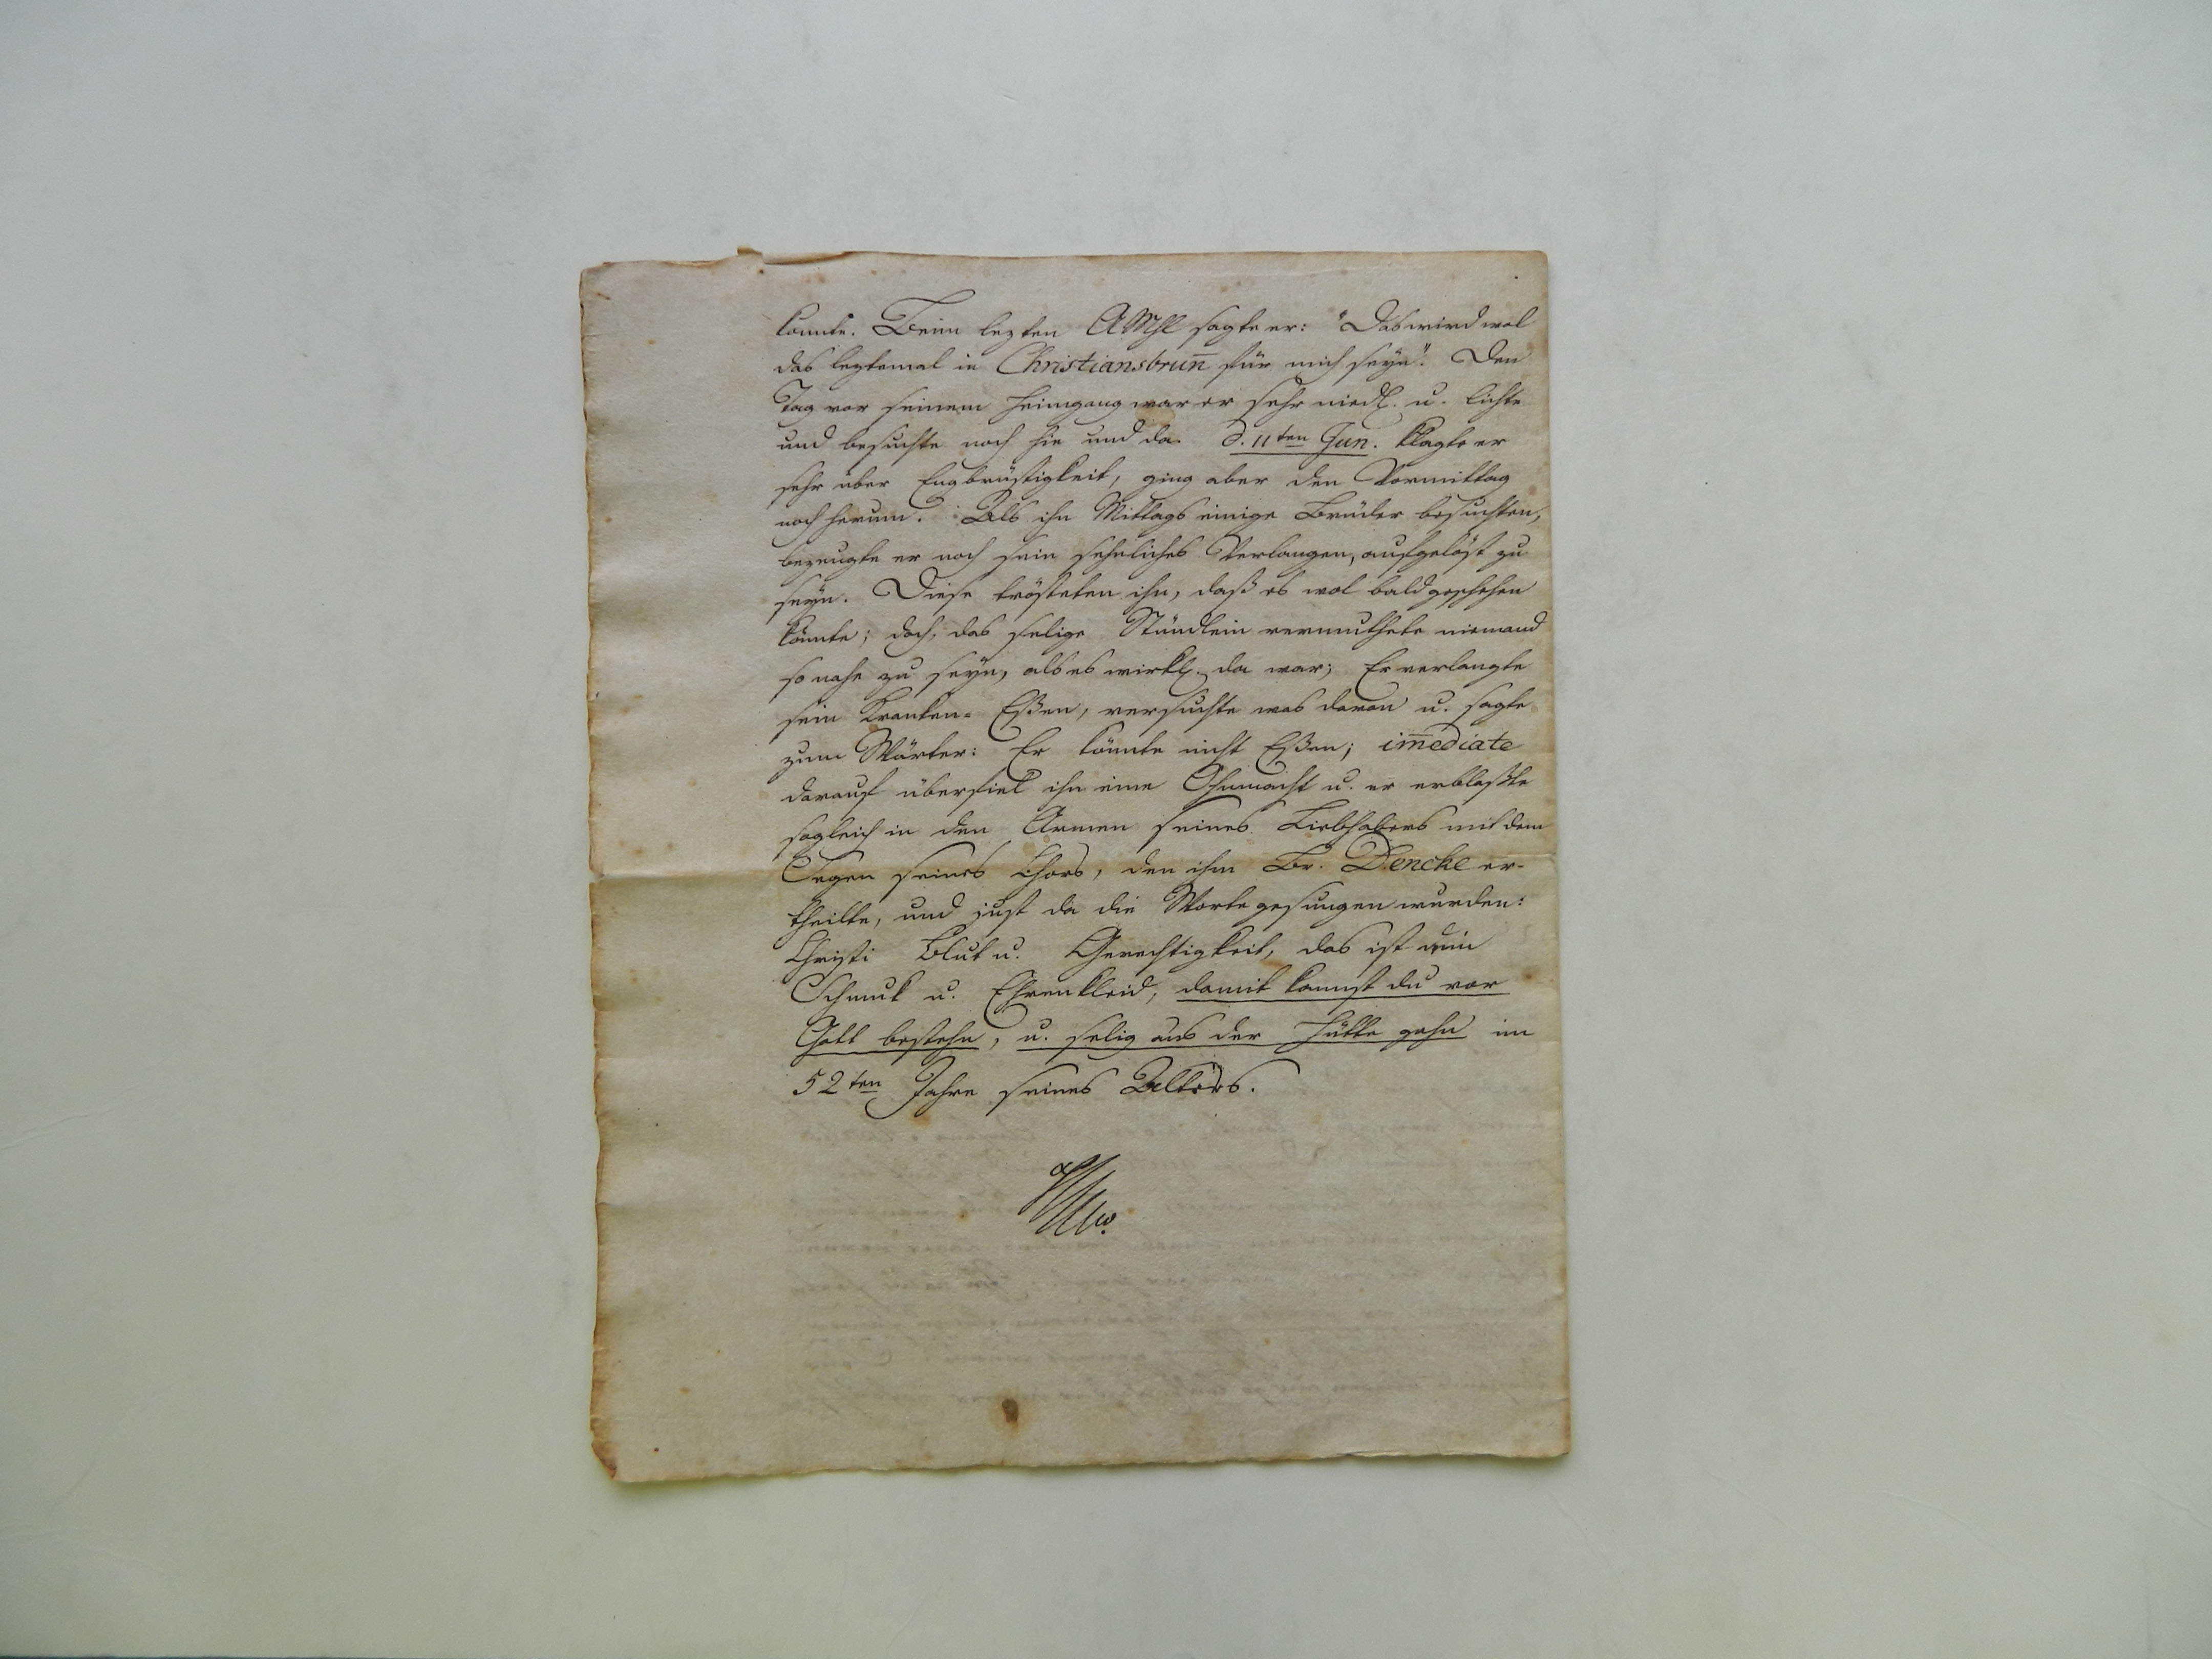 konnte. Beim lezten AMhl sagte er: "Das wird wol
das leztemal in Christiansbrun̄ für mich seyn". Den
Tag vor seinem Heimgang war er sehr niedl. u. lichte
und besuchte noch hie und da. d. 11ten Jun. klagte er
sehr über Engbrüstigkeit, ging aber den Vormittag
noch herum. Als ihn Mittags einige Brüder besuchten,
bezeugte er noch sein sehnliches Verlangen, aufgelöst zu
seyn. Diese trösteten ihn, daß es wol bald geschehen
könnte; doch, das selige Stündlein vermuthete niemand
so nahe zu seyn, als es wirkl. da war; Er verlangte
sein Kranken-Eßen, versuchte was davon u. sagte
zum Wärter: Er könnte nicht Eßen; im̄ediate
darauf überfiel ihn eine Ohnmacht u. er erblaßte
sogleich in den Armen seines Liebhabers mit dem
Segen seines Chors, den ihm Br. Dencke er-
theilte, und just da die Worte gesungen wurden:
Christi Blut u. Gerechtigkeit, das ist dein
Schmuk u. Ehrenkleid, damit kannst du vor
Gott bestehn, u. selig aus der Hütte gehn im
52ten Jahre seines Alters.